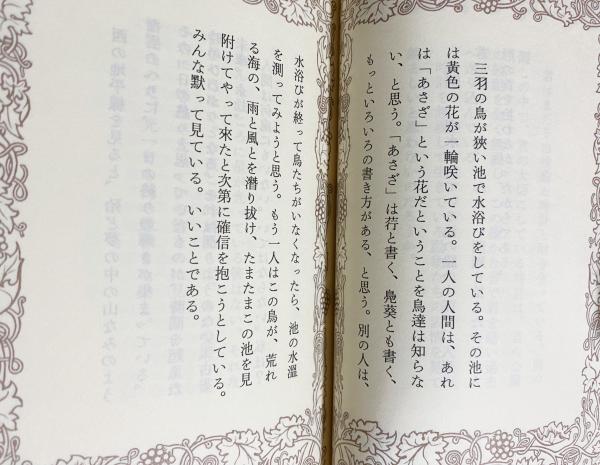 三羽の鳥が狹い池で水浴びをしている。その池に
は黃色の花が一輪咲いている。一人の人間は、あれ
は「あさざ」という花だということを鳥達は知らな
い、と思う。「あさざ」は荇と書く、鳧葵とも書く、
もっといろいろの書き方がある、と思う。別の人は、
水浴びが終って鳥たちがいなくなったら、池の水溫
を測ってみようと思う。もう一人はこの鳥が、荒れ
る海の、雨と風とを潛り拔け、たまたまこの池を見
附けてやって來たと次第に確信を抱こうとしている。
みんな默って見ている。いいことである。